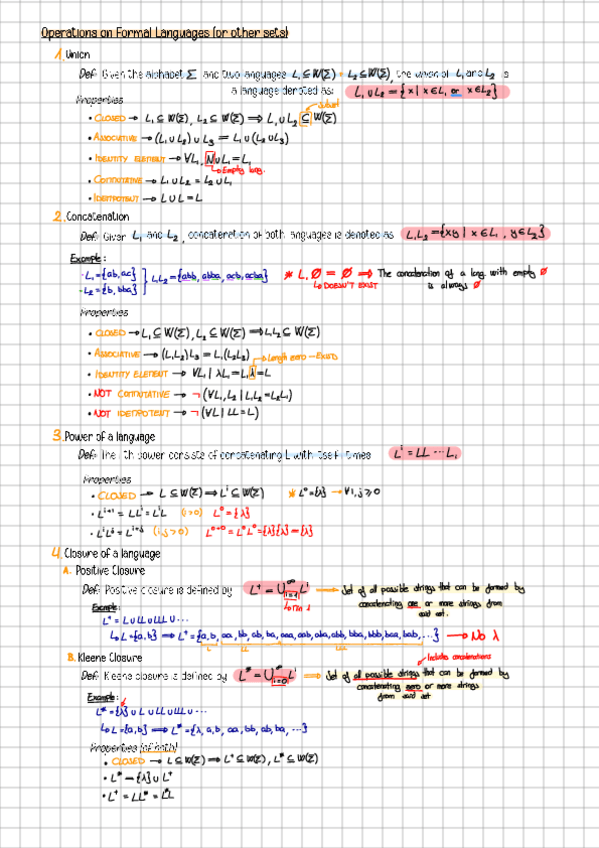 Operations on Formal Languages (or other sets)
1. Union
Def: Given the alphabet Σ and two languages L₁ ⊆ W(Σ) + L₂ ⊆ W(Σ), the union of L₁ and L₂ is
a language denoted as: L₁ ∪ L₂ = {x | x ∈ L₁ or x ∈ L₂}
Properties
subset
• CLOSED → L₁ ⊆ W(Σ), L₂ ⊆ W(Σ) ⟹ L₁ ∪ L₂ ⊆ W(Σ)
• ASSOCIATIVE → (L₁ ∪ L₂) ∪ L₃ = L₁ ∪ (L₂ ∪ L₃)
• IDENTITY ELEMENT → ∀L₁, N ∪ L₁ = L₁
↳ Empty lang.
• COMMUTATIVE → L₁ ∪ L₂ = L₂ ∪ L₁
• IDEMPOTENT → L ∪ L = L
2. Concatenation
Def: Given L₁ and L₂, concateration of both languages is denoted as L₁L₂ = {xy | x ∈ L₁, y ∈ L₂}
Example:
- L₁ = {ab, ac}
- L₂ = {b, bba}
} L₁L₂ = {abb, abba, acb, acba}
* L.∅ = ∅ ⟹ The concatenation of a lang. with empty ∅
↳ DOESN'T EXIST
is always ∅
Properties
• CLOSED → L₁ ⊆ W(Σ), L₂ ⊆ W(Σ) ⟹ L₁L₂ ⊆ W(Σ)
• ASSOCIATIVE → (L₁L₂)L₃ = L₁(L₂L₃)
→ Length zero – Exists
• IDENTITY ELEMENT → ∀L₁ | λL₁ = L₁λ = L
• NOT COMMUTATIVE → ¬(∀L₁, L₂ | L₁L₂ = L₂L₁)
• NOT IDEMPOTENT → ¬(∀L | LL = L)
3. Power of a language
Def: The i-th power consists of concatenating L with itself i times Lⁱ = LL ··· L₁
Properties
• CLOSED → L ⊆ W(Σ) ⟹ Lⁱ ⊆ W(Σ) * L⁰ = {λ} → ∀i,j ≥ 0
• Lⁱ⁺¹ = LLⁱ = LⁱL (i>0) L⁰ = {λ}
• LⁱLʲ = Lⁱ⁺ʲ (i,j>0) L⁰⁺⁰ = L⁰L⁰ = {λ}{λ} = {λ}
4. Closure of a language
A. Positive Closure
Def: Positive closure is defined by L⁺ = ∪ᵢ₌₁^∞ Lⁱ ⟹ Set of all possible strings that can be formed by
concatenating one or more strings from
said set.
↳ min 1
Example:
L⁺ = L ∪ LL ∪ LLL ∪ ···
↳ L = {a,b} ⟹ L⁺ = {a, b, aa, bb, ab, ba, aaa, aab, aba, abb, bba, bbb, baa, bab, ...} → No λ
L LL LLL
B. Kleene Closure
Includes concatenations
Def: Kleene closure is defined by L* = ∪ᵢ₌₀^∞ Lⁱ ⟹ Set of all possible strings that can be formed by
concatenating zero or more strings
from said set
Example:
L* = {λ} ∪ L ∪ LL ∪ LLL ∪ ···
↳ L = {a,b} ⟹ L* = {λ, a, b, aa, bb, ab, ba, ···}
Properties (of both)
• CLOSED → L ⊆ W(Σ) ⟹ L⁺ ⊆ W(Σ), L* ⊆ W(Σ)
• L* = {λ} ∪ L⁺
• L⁺ = LL* = L*L